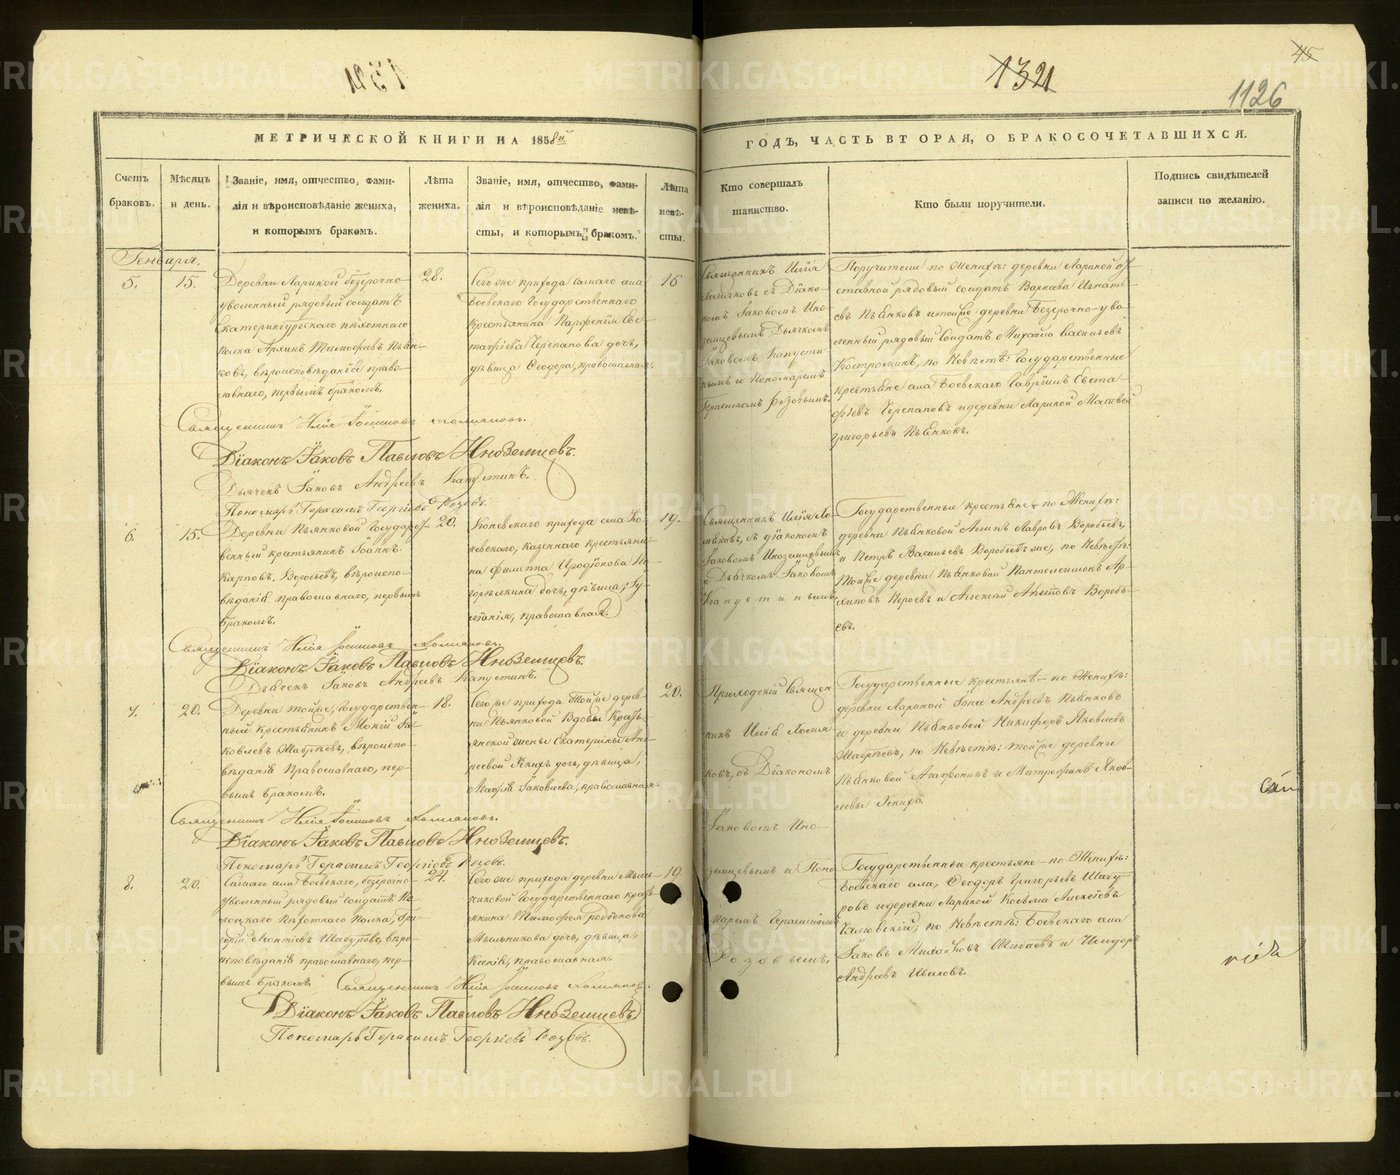 45
1321
1126
МЕТРИЧЕСКОЙ КНИГИ НА 1858й
ГОДЪ, ЧАСТЬ ВТОРАЯ, О БРАКОСОЧЕТАВШИХСЯ.
Счетъ браковъ.
Мѣсяцъ и день.
Званіе, имя, отчество, фами-
лія и вѣроисповѣданіе жениха,
и которымъ бракомъ.
Лѣта
жениха.
Званіе, имя, отчество, фами-
лія и вѣроисповѣданіе невѣ-
сты, и которымъ бракомъ.
Лѣта
невѣ-
сты.
Кто совершалъ
таинство.
Кто были поручители.
Подпись свидѣтелей
записи по желанію.
Генваря.
5.
15.
Деревни Лариной безсрочно-
уволенный рядовый солдатъ
Екатеринбургскаго пѣхотнаго
полка Архипъ Тимофѣевъ Пьян-
ковъ, вѣроисповѣданія право-
славнаго, первымъ бракомъ.
28.
Сего же прихода самаго села
Боевскаго Государственнаго
крестьянина Парфенія Евс-
тафіева Черепанова дочь,
дѣвица Ѳеодора, православная.
16
Священникъ Илія
Холмяковъ съ Діако-
номъ Іаковомъ Ино-
земцевымъ Дьячкомъ
Іаковомъ Капусти-
нымъ и Пономаремъ
Герасимомъ Розовымъ.
Поручители по женихѣ: деревни Лариной от-
ставной рядовый солдатъ Варнава Игнать-
евъ Пьянковъ и тойже деревни безсрочно-уво-
ленный рядовый солдатъ Михаило Васильевъ
по невѣстѣ: Государственные
крестьяне села Боевскаго Гавріилъ Евста-
фіевъ Черепановъ и деревни Лариной Матвей
Григорьевъ Пьянковъ.
Священникъ Илія Іосифовъ Холмяковъ.
Діаконъ Іаковъ Павловъ Иноземцевъ.
Дьячекъ Іаковъ Андреевъ Капустинъ.
Пономарь Герасимъ Георгіевъ Розовъ.
6.
15.
Деревни Пьянковой Государст-
венный крестьянинъ Іоаннъ
Карповъ Воробьевъ, вѣроиспо-
вѣданія православнаго, первымъ
бракомъ.
20.
прихода села
казеннаго крестьяни-
на Филиппа Иродіонова
дочь, дѣвица,
православная.
19.
Священникъ Илія Хо-
мяковъ, съ діакономъ
Іаковомъ Иноземцевымъ
и Дьячкомъ Іаковомъ
Капустинымъ.
Государственные крестьяне - по женихѣ:
деревни Пьянковой Лавровъ Воробьевъ,
и Петръ Васильевъ Воробьевъ же, по невѣстѣ:
тойже деревни Пьянковой Пантелеимонъ Ар-
хиповъ и Алексей Воробь-
евъ.
Священникъ Илія Іосифовъ Холмяковъ.
Діаконъ Іаковъ Павловъ Иноземцевъ.
Дьячекъ Іаковъ Андреевъ Капустинъ.
7.
20.
Деревни тойже, Государствен-
ный крестьянинъ Іа-
ковлевъ вѣроиспо-
вѣданія Православнаго, пер-
вымъ бракомъ.
18.
Сего же прихода тойже дерев-
ни Пьянковой Вдовы Кресть-
янской жены Екатерины Анд-
реевой дочь, дѣвица,
Марія Іаковлева, православная.
20.
Приходскій Священ-
никъ Илія Холмя-
ковъ, съ Діакономъ
Іаковомъ Ино-
земцевымъ и Поно-
маремъ Герасимомъ
Розовымъ.
Государственные крестьяне - по женихѣ:
деревни Лариной Іона Андреевъ Пьянковъ
и деревни Пьянковой Никифоръ Яковлевъ
по невѣстѣ: тойже деревни
Пьянковой Агафоникъ и Митрофанъ Яков-
левы
Священникъ Илія Іосифовъ Холмяковъ.
Діаконъ Іаковъ Павловъ Иноземцевъ.
Пономарь Герасимъ Георгіевъ Розовъ.
8.
20.
Самаго села Боевскаго, безсрочно-
уволенный рядовый солдатъ
пѣхотнаго полка,
Леонтіевъ Шабуровъ, вѣро-
исповѣданія православнаго, пер-
вымъ бракомъ.
24.
Сего же прихода деревни Мыль-
никовой Государственнаго кресть-
янина Тимофея Родіонова
Мыльникова дочь, дѣвица,
Ксенія, православная.
19.
Государственны крестьяне - по женихѣ:
Боевскаго села, Ѳеодоръ Григорьевъ Шабу-
ровъ и деревни Лариной Косьма Алексеевъ
по невѣстѣ: Боевскаго села
Іаковъ Михайловъ и
Андреевъ Ивановъ.
Священникъ Илія Іосифовъ Холмяковъ.
Діаконъ Іаковъ Павловъ Иноземцевъ.
Пономарь Герасимъ Георгіевъ Розовъ.
METRIKI.GASO-URAL.RU